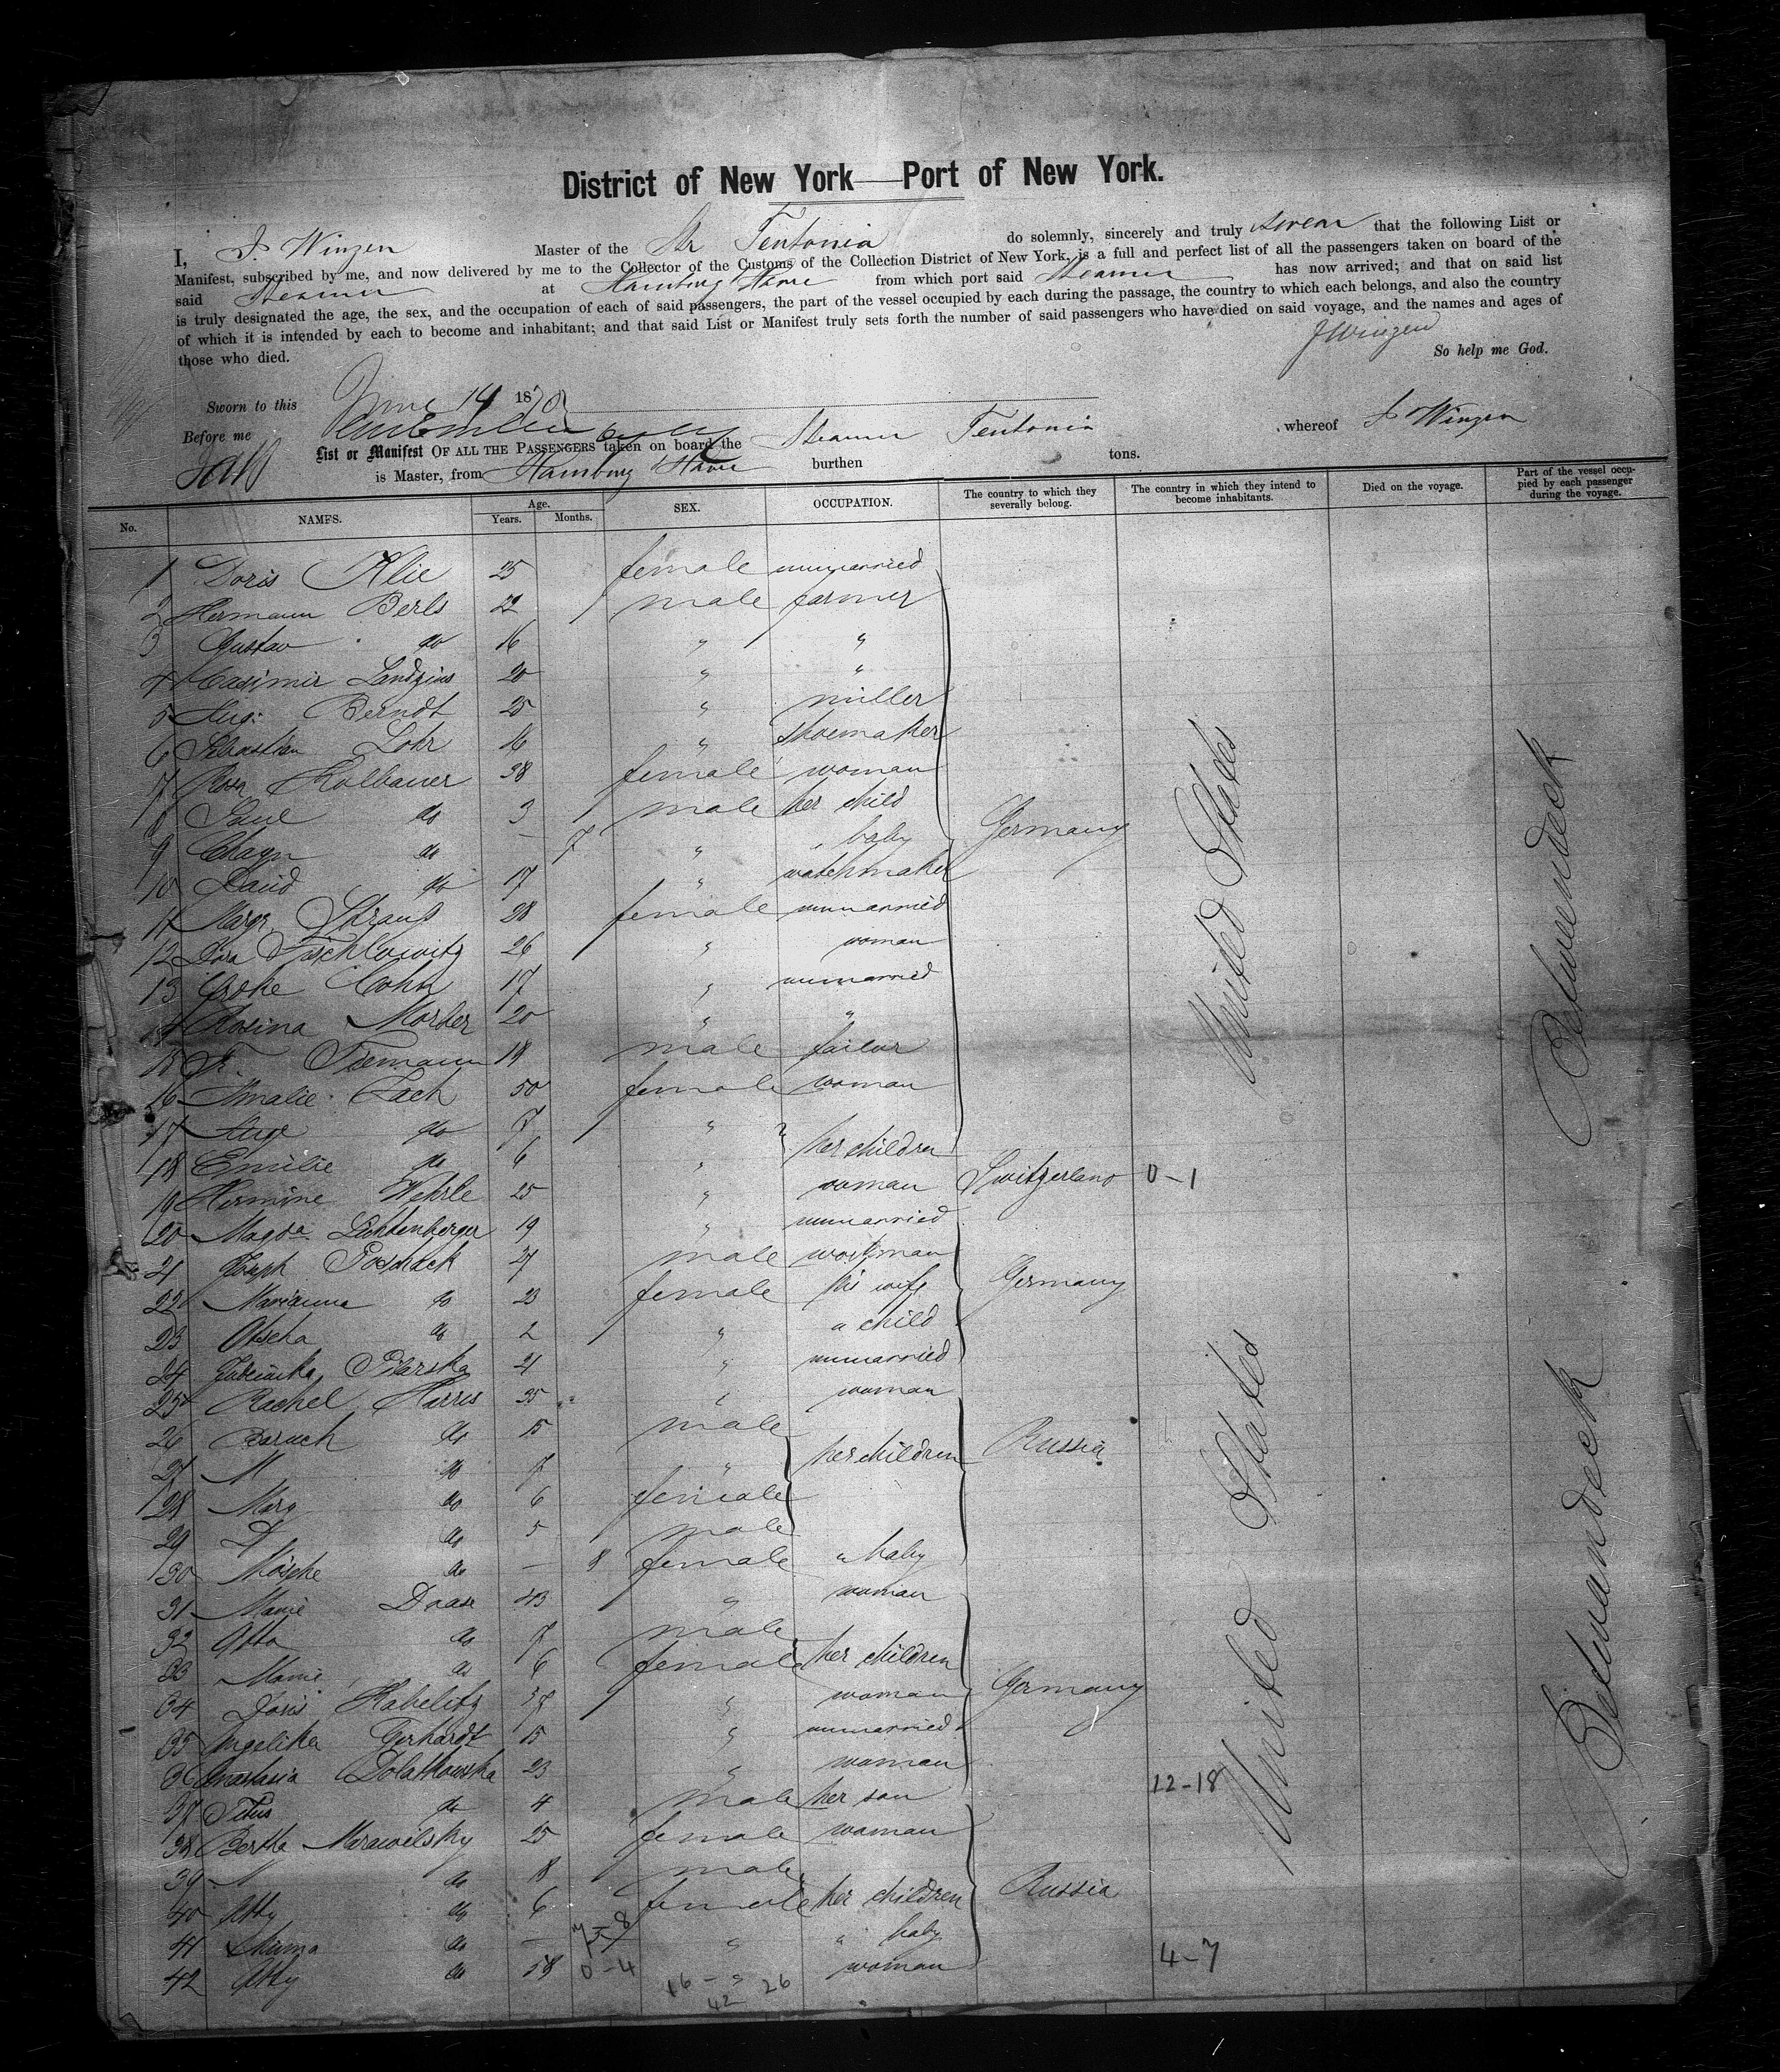 District of New York—Port of New York.
I, J. Winzen Master of the Str Teutonia do solemnly, sincerely and truly swear that the following List or
Manifest, subscribed by me, and now delivered by me to the Collector of the Customs of the Collection District of New York, is a full and perfect list of all the passengers taken on board of the
said Steamer at Hamburg Havre from which port said Steamer has now arrived; and that on said list
is truly designated the age, the sex, and the occupation of each of said passengers, the part of the vessel occupied by each during the passage, the country to which each belongs, and also the country
of which it is intended by each to become and inhabitant; and that said List or Manifest truly sets forth the number of said passengers who have died on said voyage, and the names and ages of
those who died.
JWinzen
So help me God.
Sworn to this June 14 1870
Before me
List or Manifest OF ALL THE PASSENGERS taken on board the Steamer Teutonia whereof J Winzen
is Master, from Hamburg Havre burthen tons.
No. NAMES. Age. Years. Months. SEX. OCCUPATION. The country to which they severally belong. The country in which they intend to become inhabitants. Died on the voyage. Part of the vessel occupied by each passenger during the voyage.
1 Doris Klie 25 female unmarried
2 Hermann Berls 22 male farmer
3 Gustav do 16 " "
4 Casimir 20 " "
5 Aug: Berndt 25 " miller
6 Sebastian Lohr 16 " shoemaker
7 Rosa Kolbauer 38 female woman
8 Saul do 3 male her child
9 do — 7 " " baby Germany
10 David do 17 " watchmaker
11 Margr. Strauß 28 female unmarried
12 Dora 26 " woman
13 Cohn 17 " unmarried
14 Rosina Morder 20 " "
15 Fr. Tiemann 18 male tailor
16 Amalie Zach 50 female woman
17 Aug do 7 "
18 Emilie do 6 " her children
19 Hermine Wehrle 25 " woman Switzerland 0-1
20 Magda Lichtenberger 19 " unmarried
21 Joseph 27 male workman
22 Marianna do 23 female his wife Germany
23 do 2 " a child
24 Pilarska 21 " unmarried
25 Rachel Harris 35 " woman
26 Baruch do 15 male
27 M do 7 " her children Russia
28 Marg do 6 female
29 do 5 male
30 Mosche do — 8 female " baby
31 Marie Daase 43 " woman
32 Otto do 7 male
33 Marie do 6 female her children
34 Doris Habelitz 37 " woman Germany
35 Angelika Gerhardt 15 " unmarried
36 Anastasia Dolatkowska 23 " woman
12-18
37 Titus do 4 male her son
38 Bertha Marawilsky 25 female woman
39 do 8 male
40 Abby do 6 female her children Russia
41 do — " " baby
42 Abby do 58 0-4 " woman
4-7
16 - 26
42
United States
United States
Betweendeck
Betweendeck